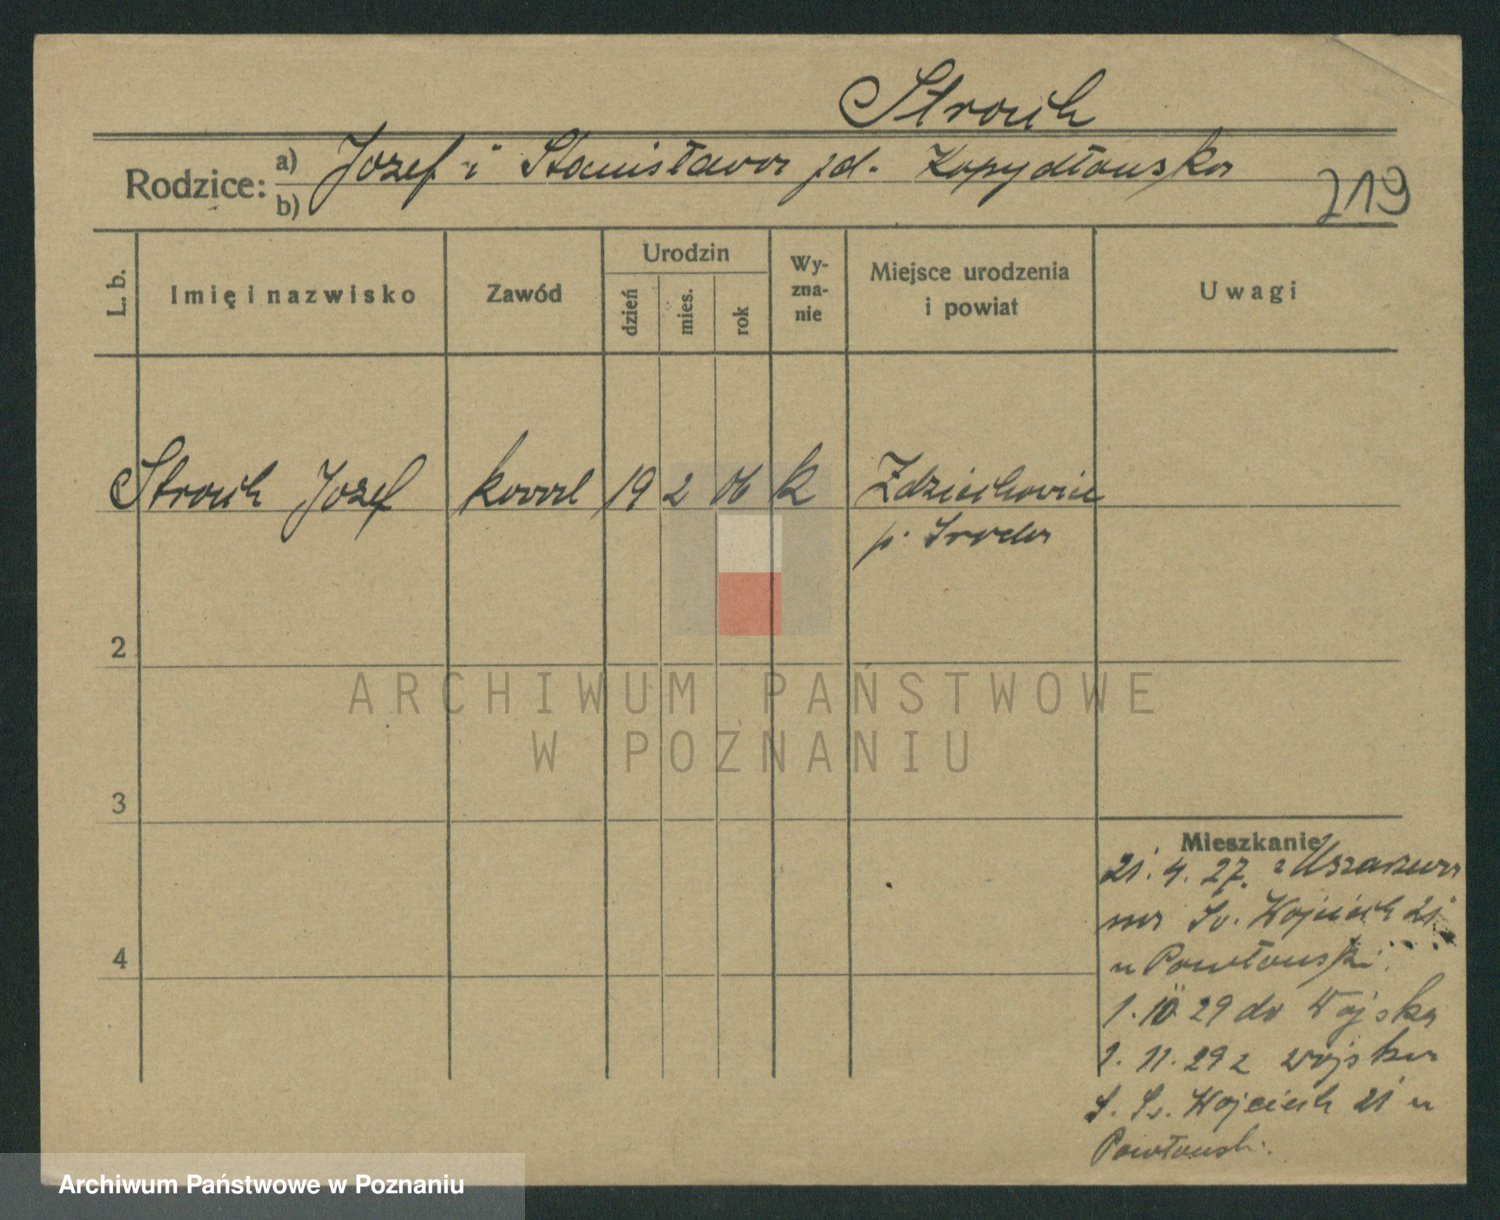 Stroich
Rodzice: a) Jozef i Stanisława zd. Kopydłowska
b)
219
L. b. Imię i nazwisko Zawód Urodzin dzień mies. rok Wy-zna-nie Miejsce urodzenia i powiat Uwagi
Józef 19 2 06 k Zdziechowice
p. Sroda
2
ARCHIWUM PAŃSTWOWE
W POZNANIU
3
Mieszkanie
21. 4. 27. z
na Św. Wojciech 21
u Pawłowski
4
1. 10 29 do Wojska
1. 11. 29 z wojska
Św. Wojciech 21 u
Pawłowski.
Archiwum Państwowe w Poznaniu